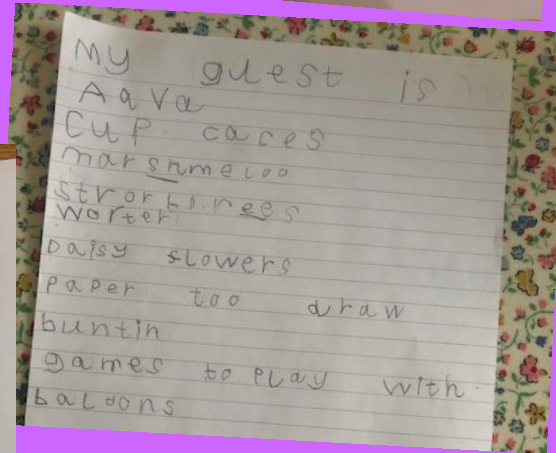 My guest is
Aava
Cup caces
marshmeloo
strorbirees
worter
Daisy flowers
Paper too draw
buntin
games to play with
baloons